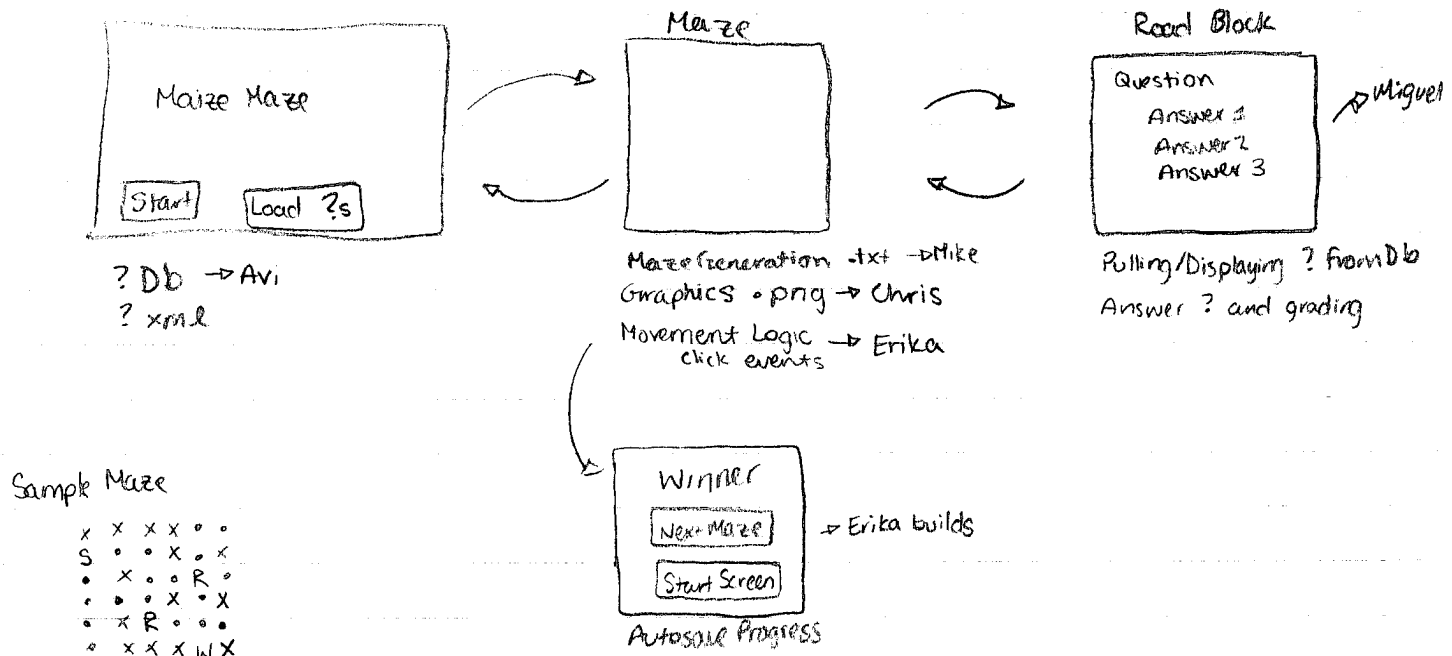 Maize Maze
Start
Load ?s
? Db → Avi
? xml
Maze
Maze Generation .txt → Mike
Graphics .png → Chris
Movement Logic → Erika
click events
Road Block
Question
Answer 1
Answer 2
Answer 3
→ Miguel
Pulling/Displaying ? from Db
Answer ? and grading
Winner
Next Maze
Start Screen
→ Erika builds
Autosave Progress
Sample Maze
X X X X • •
S • • X • X
• X • • R •
• • • X • X
• X R • • •
• X X X W X